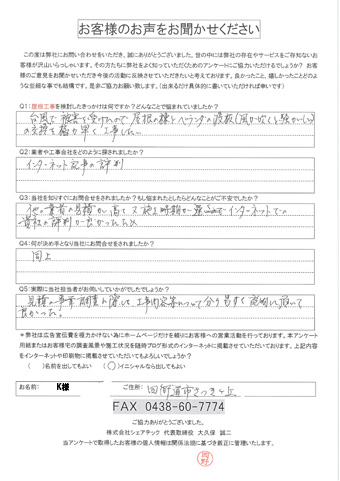 お客様のお声をお聞かせください
この度は弊社にお問い合わせをいただき、誠にありがとうございました。世の中には弊社の存在やサービスをご存知ないお
客様が沢山いらっしゃいます。その方たちに弊社をよく知っていただくためのアンケートにご協力いただけるでしょうか？お
客様のご意見をお聞かせいただき今後の活動に反映させていただきたいと考えております。良かったこと、嬉しかったことどのよ
うな些細な事でも結構です。是非ご協力お願い致します。(出来るだけ具体的に書いていただければ幸いです)
Q1：屋根工事を検討したきっかけは何ですか？どんなことで悩まれていましたか？
台風で被害を受けたので屋根の棟とベランダの波板
の交換を極力早く工事した
Q2：業者や工事会社をどのように探されましたか？
インターネット記事の評判
Q3：当社を知りすぐにお問合せをされましたか？もし悩まれたとしたらどんなことがご不安でしたか？
他の業者の見積が高くて又施工時期が遅るのでインターネットでの
貴社の評判が良かったため
Q4：何が決め手となり当社にお問合せをされましたか？
同上
Q5：実際に当社担当者がお伺いしていかがでしたでしょうか？
見積の事前調査に際して、工事内容等について分り易すく説明して頂いて
良かった。
＊弊社は広告宣伝費を極力かけない為にホームページだけを頼りにお客様への営業活動を行っております。本アンケート
用紙またはお客様宅の調査風景や施工状況を随時ブログ形式のインターネットに掲載させていただいております。上記内容
をインターネットや印刷物に掲載させていただいてもよろしいでしょうか？
(　)名前を出してもよい　(○)イニシャルなら出してもよい
お名前：　K様　ご住所：　四街道市さつきヶ丘
FAX 0438-60-7774
ご協力ありがとうございました。
株式会社シェアテック 代表取締役 大久保 誠二
当アンケートで取得したお客様の個人情報は関係法規に基づき厳正に管理いたします。